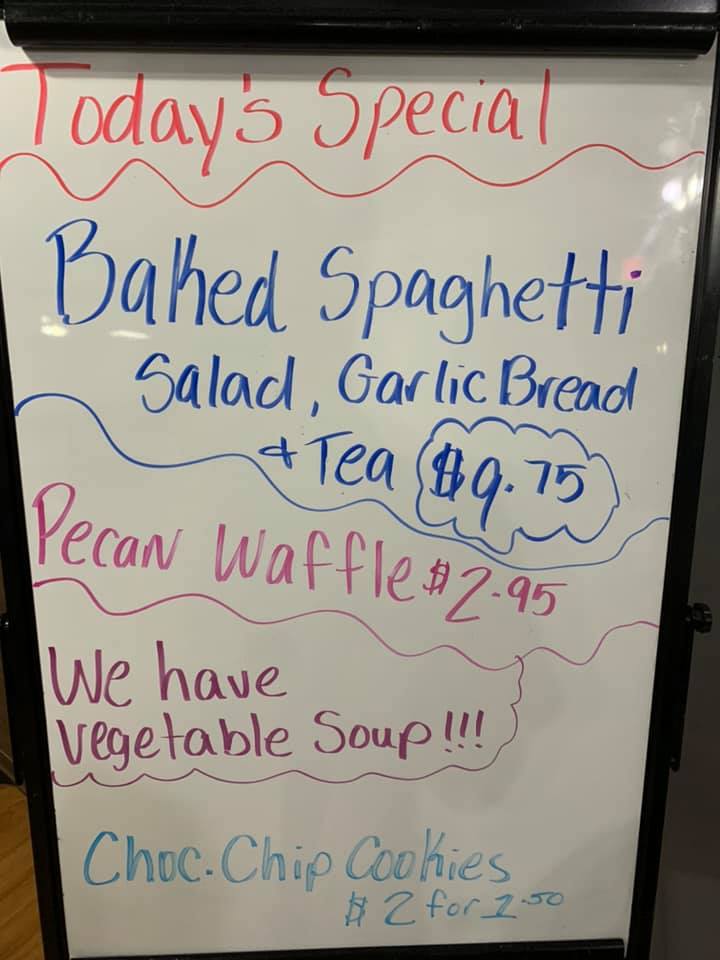 Today's Special
Baked Spaghetti
Salad, Garlic Bread
+ Tea $9.75
Pecan Waffle $2.95
We have
vegetable Soup!!!
Choc. Chip Cookies
$2 for 1.50